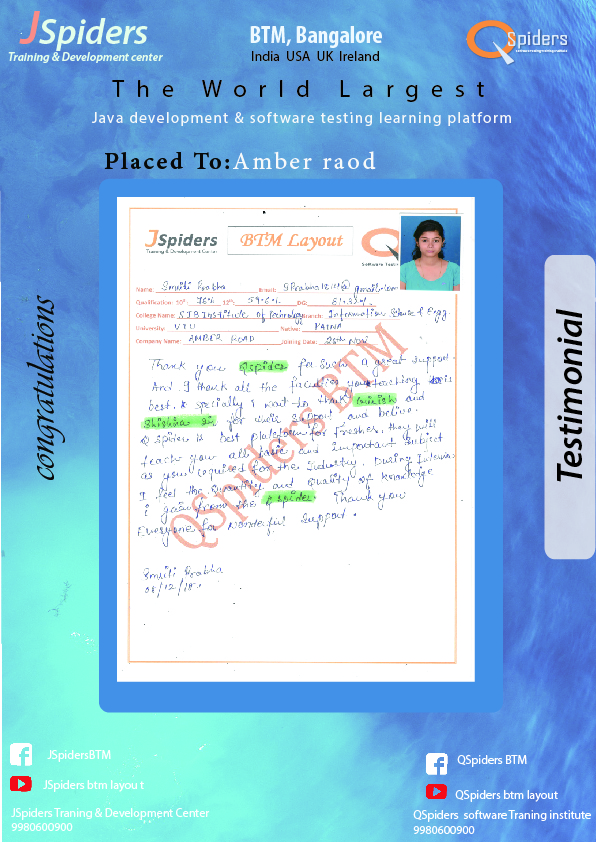 JSpiders
Training & Development center
BTM, Bangalore
India USA UK Ireland
QSpiders
The World Largest
Java development & software testing learning platform
Placed To:Amber raod
JSpiders
Training & Development Center
BTM Layout
Q
Software Testing
Name: Smriti Prabha Email: @gmail.com
Qualification- 10th: 76% 12th: 59.6% DG:
College Name: SJB Institute of Technology Branch: Information Science & Engg.
University: VTU Native: PATNA
Company Name: AMBER ROAD Joining Date: 26th NOV
Thank you Qspider for such a great support.
And I thank all the faculties your teaching is
best. & specially I want to thank Girish and
Shishira sir for their support and belive.
Q spider is best platform for freshes. they will
teach you all basic and important subject
as you required for the Industry. During Interview
I feel the Quantity and Quality of knowledge
i gain from the Q spider. Thank you
Everyone for Wonderful Support.
Smriti Prabha
08/12/18
QSpiders BTM
congratulations
Testimonial
JSpidersBTM
JSpiders btm layou t
JSpiders Traning & Development Center
9980600900
QSpiders BTM
QSpiders btm layout
QSpiders software Traning institute
9980600900